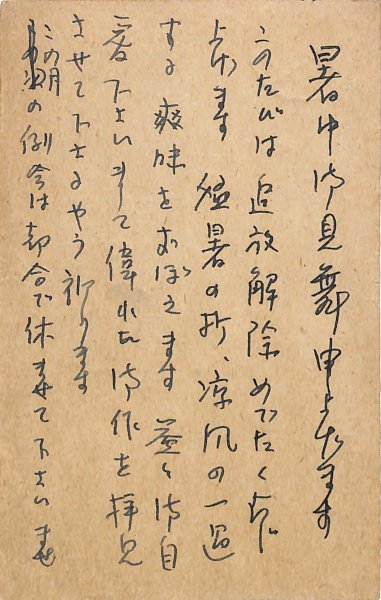 暑中御見舞申上げます
このたびは追放解除めでたく存じ
上げます 猛暑の折、凉風の一過
する爽味をおぼえます 益々御自
愛下さいまして偉れた御作を拝見
させて下さるやう祈ります
この月の例会は都合で休ませて下さいませ